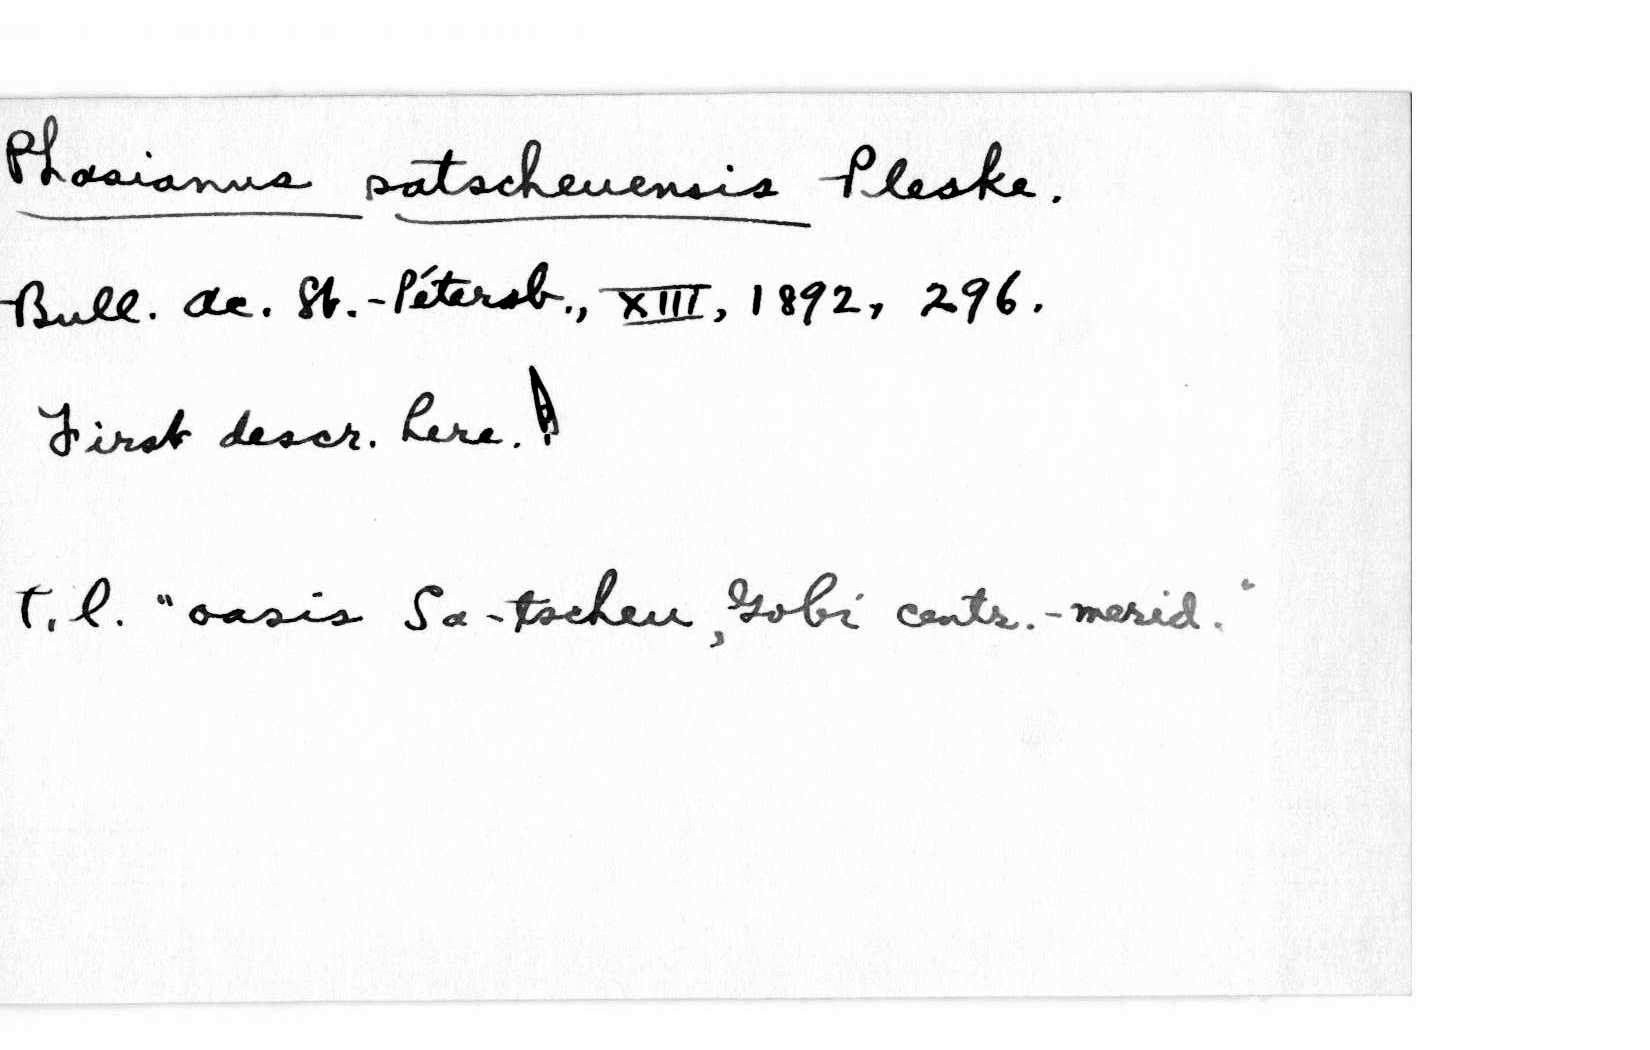 Phasianus satscheuensis Pleske.
Bull. Ac. St.-Pétersb., XIII, 1892, 296.
First descr. here.!
T.l. "oasis Sa-tscheu, Gobi centr.-merid."